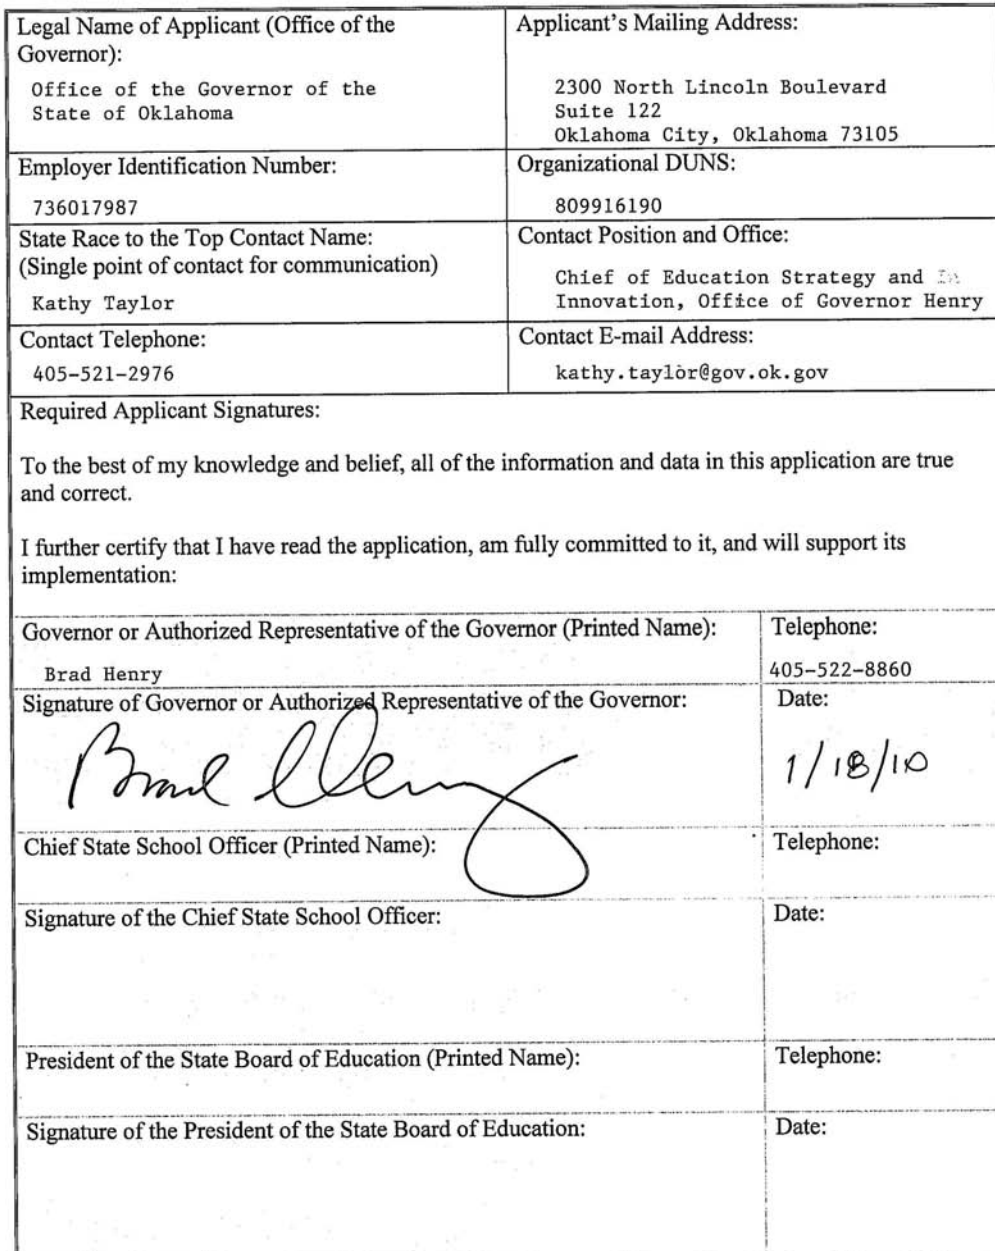 Legal Name of Applicant (Office of the
Governor):
Office of the Governor of the
State of Oklahoma
Applicant's Mailing Address:
2300 North Lincoln Boulevard
Suite 122
Oklahoma City, Oklahoma 73105
Employer Identification Number:
736017987
Organizational DUNS:
809916190
State Race to the Top Contact Name:
(Single point of contact for communication)
Kathy Taylor
Contact Position and Office:
Chief of Education Strategy and
Innovation, Office of Governor Henry
Contact Telephone:
405-521-2976
Contact E-mail Address:
kathy.taylor@gov.ok.gov
Required Applicant Signatures:
To the best of my knowledge and belief, all of the information and data in this application are true
and correct.
I further certify that I have read the application, am fully committed to it, and will support its
implementation:
Governor or Authorized Representative of the Governor (Printed Name):
Brad Henry
Telephone:
405-522-8860
Signature of Governor or Authorized Representative of the Governor:
Brad Henry
Date:
1/18/10
Chief State School Officer (Printed Name):
Telephone:
Signature of the Chief State School Officer:
Date:
President of the State Board of Education (Printed Name):
Telephone:
Signature of the President of the State Board of Education:
Date: